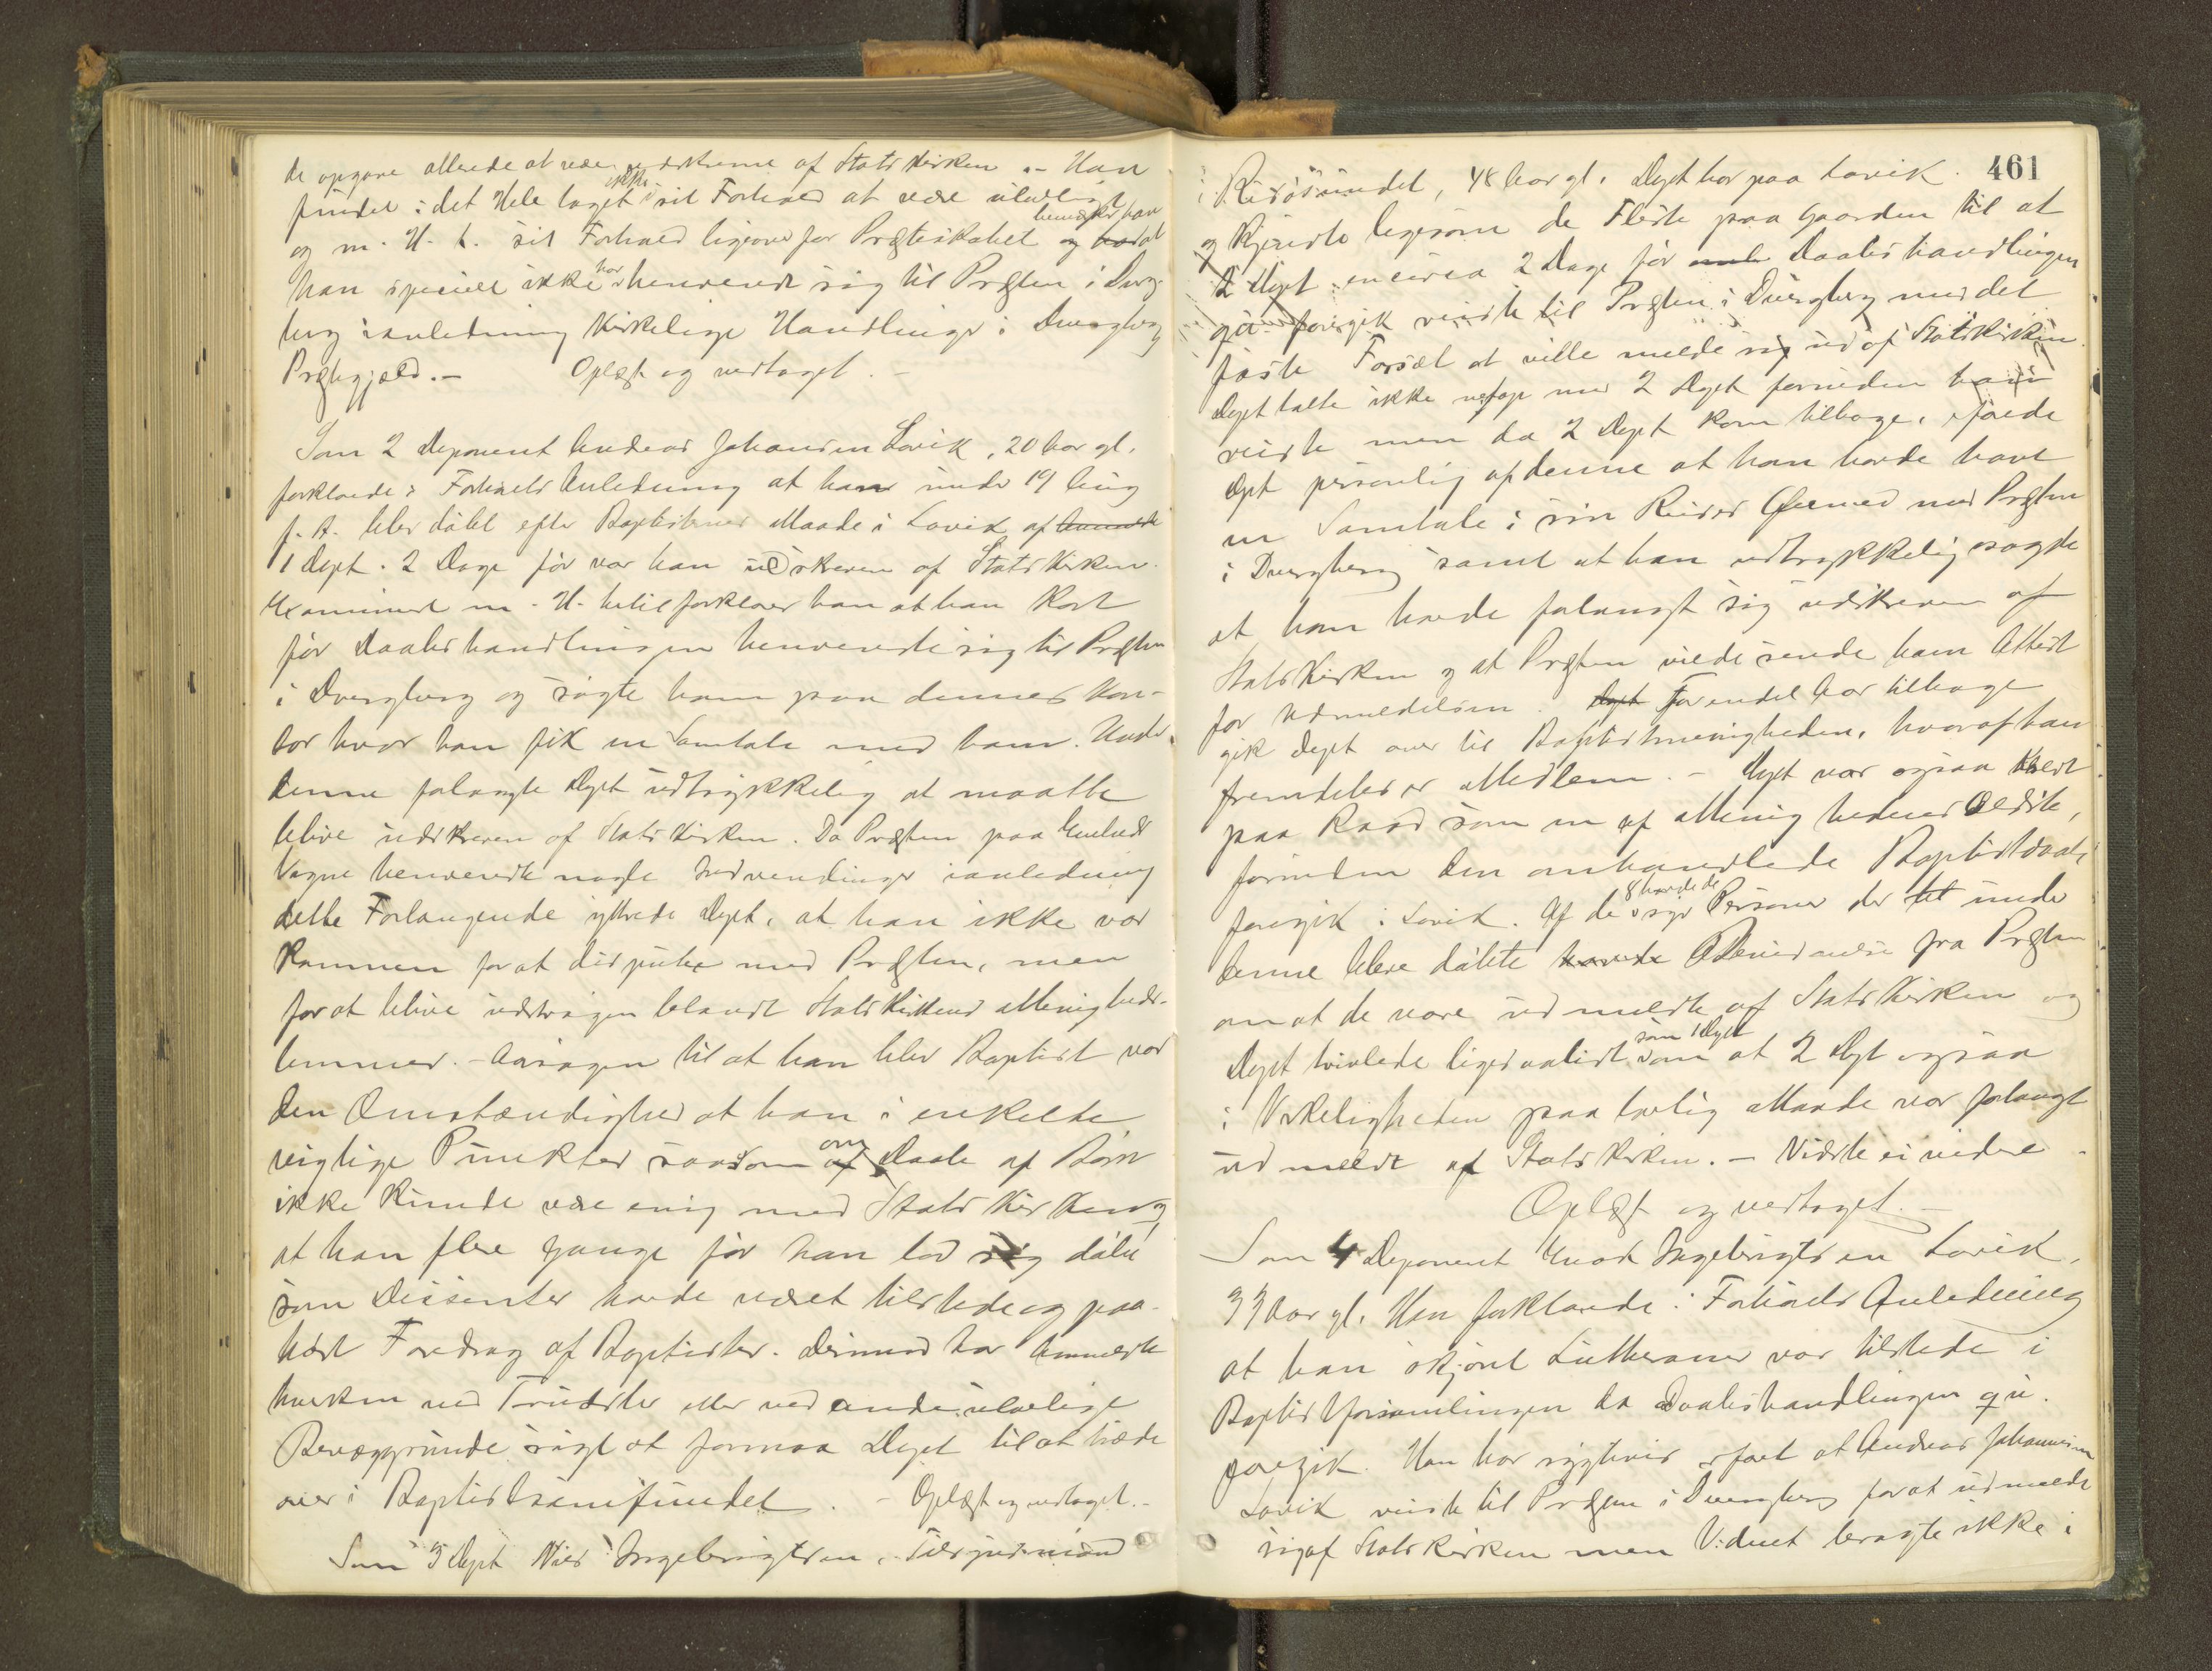 de opgave allerede at være udskrevne af Statskirken. – Han
finder i det Hele taget ikke sit Forhold at være ulovligt
og m. H. t. sit Forhold ligeoverfor Præsteskabet bemærker han og at
han specielt ikke har henvendt sig til Præsten i Dverg-
berg ianledning kirkelige Handlinger i Dvergberg
Præstegjæld. – Oplæst og vedtaget. –
Som 2 Deponent Andreas Johansen Lovik, 20 Aar gl.
forklarede i Forholds Anledning at han under 19 Aug
f. A. blev døbt efter Baptisternes Maade i Lovik af
1 Dept. 2 Dage før var han udskreven af Statskirken.
Examineret m. H. hertil forklarer han at han kort
før Daabshandlingen henvendte sig til Præsten
i Dvergberg og søgte ham paa dennes Kon-
tor hvor han fik en Samtale med ham. Under
denne forlangte Dept udtrykkelig at maatte
blive udskreven af Statskirken. Da Præsten paa
henvendte nogle Indvendinger ianledning
dette Forlangende yttrede Dept, at han ikke var
kommen for at disputere med Præsten, men
for at blive udstrøgen blandt Statskirkens Menigheds-
lemmer. – Aarsagen til at han blev Baptist var
den Omstændighed at han i enkelte
vigtige Punkter saasom om Daab af Børn
ikke kunde være enig med Statskirken og
at han flere Gange før han lod sig døbe
som Dissenter havde været tilstede og paa-
hørt Foredrag af Baptister. Derimod har Anmeldte
hverken ved Trudsler eller ved andre ulovlige
Bevæggrunde søgt at formaa Dept til at træde
over i Baptistsamfundet. – Oplæst og vedtaget. –
Som 3 Dept Nils Ingebrigtsen,
461
i Risøsundet, 48 Aar gl. Dept bor paa Lovik
og kjendte ligesom de Fleste paa Gaarden til at
2 Dept encirca 2 Dage før Daabshandlingen
qu. foregik reiste til Præsten i Dvergberg med det
faste Forsæt at ville melde sig ud af Statskirken.
Dept talte ikke med 2 Dept forinden han
reiste men da 2 Dept kom tilbage, erfarede
Dept personlig af denne at han havde havt
en Samtale i sin Reises Øiemed med Præsten
i Dvergberg samt at han udtrykkelig sagde
at han havde forlangt sig udskreven af
Statskirken og at Præsten vilde sende ham Attest
for Udmeldelsen. Dept For endel Aar tilbage
gik Dept over til Baptistmenigheden, hvoraf han
fremdeles er Medlem. – Dept var ogsaa
paa Raad som en af Menighedens Ældste,
forinden den omhandlede Baptistdaab
foregik i Lovik. Af de 8 havde de syv Personer der under
denne bleve døbte havde Bevidnelse fra Præsten
om at de vare udmeldte af Statskirken og
Dept tvivlede ligesaalidt som 1 Dept om at 2 Dept ogsaa
i Virkeligheden paa lovlig Maade var forlangt
udmeldt af Statskirken. – Vidste ei videre –
Oplæst og vedtaget. –
Som 4 Deponent Ingebrigtsen Lovik,
33 Aar gl. Han forklarede i Forholds Anledning
at han skjønt Lutheraner var tilstede i
Baptistforsamlingen da Daabshandlingen qu.
foregik. Han har rygtevis erfaret at Andreas Johannesen
Lovik reiste til Præsten i Dvergberg for at udmelde
sig af Statskirken men Vidnet ikke i